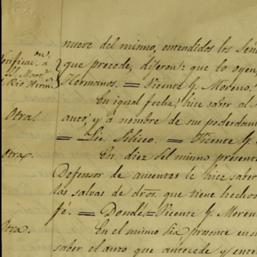 nueve del mismo, entendidos los Señ
que precede, dijeron: que lo oyen,
Hermanos. = Vicente G. Moreno.
Otra.
En igual fecha, hice saber al
auto, y a nombre de sus poderdan
= Lic. = Vicente G.
Otra.
En diez del mismo presente
Defensor de ausentes le hice saber
las salvas de dros. que tiene hechas
fé. = Donde = Vicente G. Moren
Otra.
En el mismo dia presente en su
saber el auto que antecede y enter